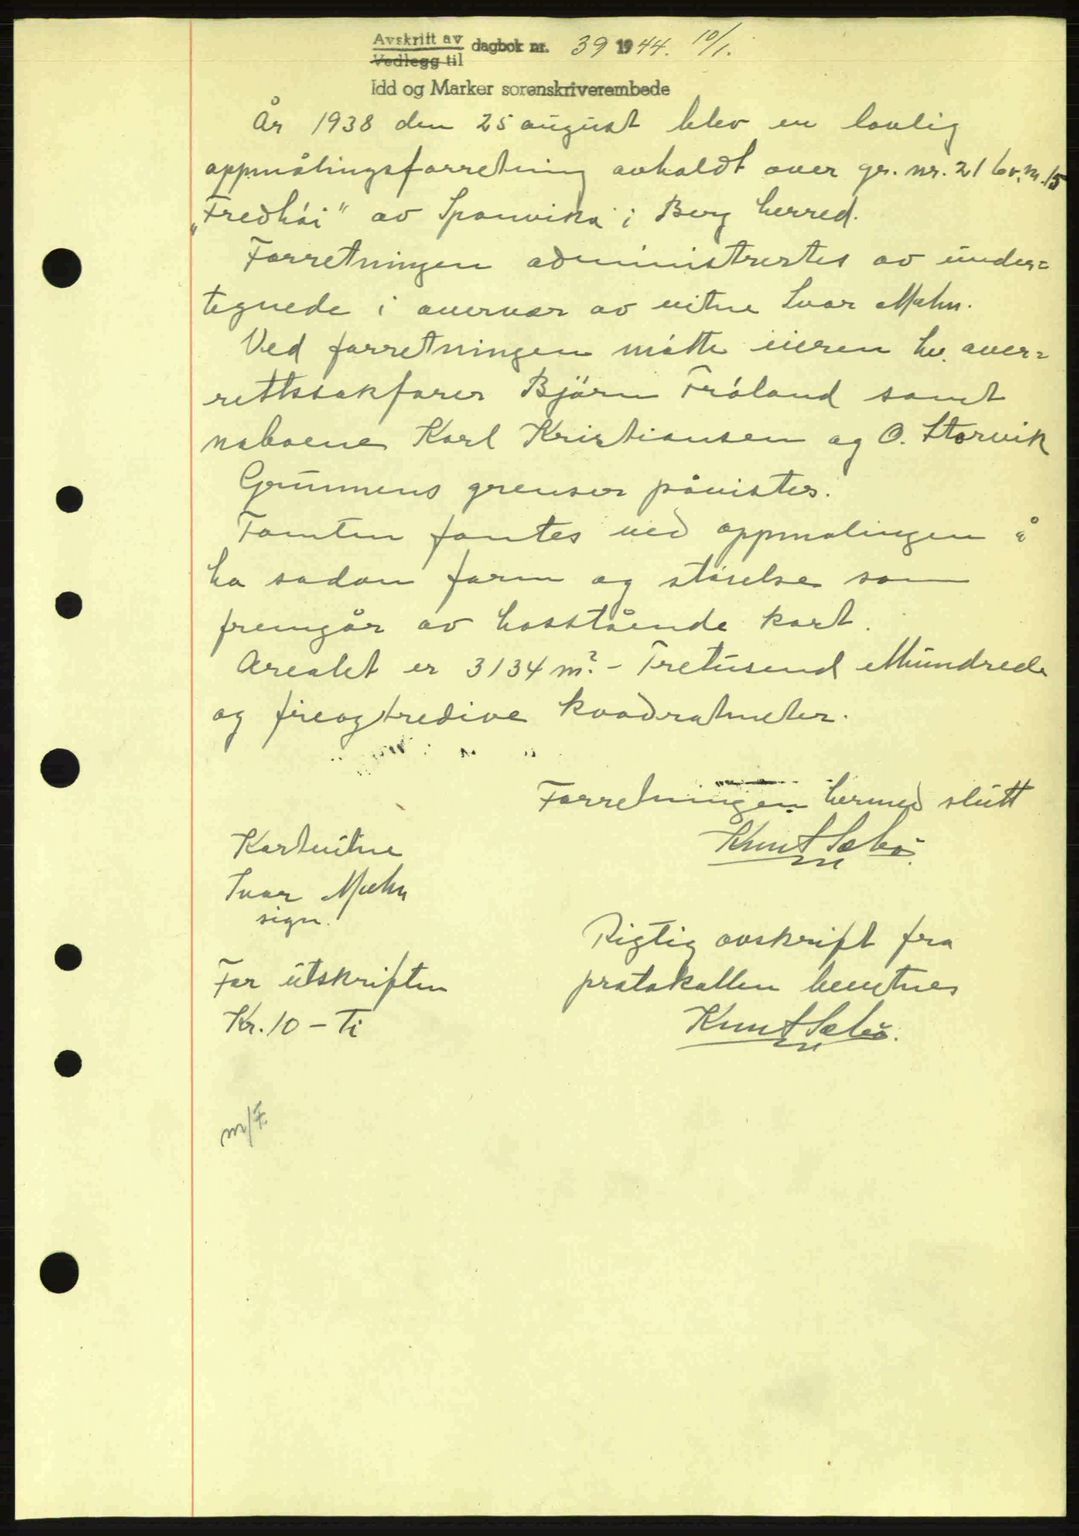 Avskrift av
Vedlegg til
dagbok nr. 39 1944. 10/1.
Idd og Marker sorenskriverembede
År 1938 den 25 august blev en lovlig
oppmålingsforretning avholdt over gr. nr. 21 br. nr. 15
"Fredhöi" av Sponvika i Berg herred.
Forretningen administrertes av under=
tegnede i overvær av vitne Ivar Mæhn.
Ved forretningen måtte eieren hr. over=
rettssakfører Björn Fröland samt
naboene Karl Kristiansen og O. Storvik
Grunnens grenser påvistes.
Tomten fantes ved oppmålingen å
ha sådan form og störelse som
fremgår av hosstående kart.
Arealet er 3134 m². - Tretusend etthundrede
og fireogtredive kvadratmeter.
Forretningen hermed slutt
Knut Sæbö.
Kartvitne
Ivar Mæhn
sign.
Rigtig avskrift fra
protokollen bevitnes
Knut Sæbö.
For utskriften
Kr. 10 - Ti
m/F.